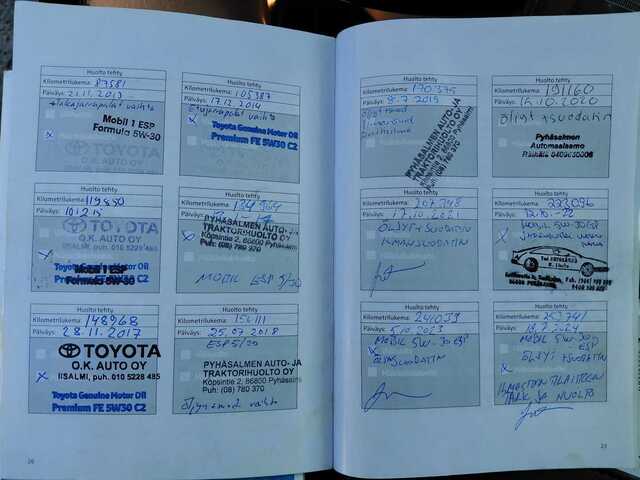 Huolto tehty
Kilometrilukema: 87581
Päiväys: 21.11.2013
etujarrupalat vaihto
Mobil 1 ESP
Formula 5W-30
TOYOTA
Huolto tehty
Kilometrilukema: 105387
Päiväys: 17.12.2014
Etujarrupalat vaihto
Toyota Genuine Motor Oil
Premium FE 5W30 C2
Huolto tehty
Kilometrilukema: 119880
Päiväys: 10.12.15
TOYOTA
O.K. AUTO OY
IISALMI, puh. 010 5228 485
Mobil 1 ESP
Formula 5W-30
Huolto tehty
Kilometrilukema: 134964
Päiväys:
PYHÄSALMEN AUTO- JA
TRAKTORIHUOLTO OY
Köpsintie 2, 86800 Pyhäsalmi
Puh: (08) 780 370
MOBIL ESP 5/30
Huolto tehty
Kilometrilukema: 148968
Päiväys: 28.11.2017
TOYOTA
O.K. AUTO OY
IISALMI, puh. 010 5228 485
Toyota Genuine Motor Oil
Premium FE 5W30 C2
Huolto tehty
Kilometrilukema: 156111
Päiväys: 25.07.2018
ESP 5/30
PYHÄSALMEN AUTO- JA
TRAKTORIHUOLTO OY
Köpsintie 2, 86800 Pyhäsalmi
Puh: (08) 780 370
vaihto
26
Huolto tehty
Kilometrilukema: 170375
Päiväys: 8.7.2019
PYHÄSALMEN AUTO- JA
TRAKTORIHUOLTO OY
Köpsintie 2, 86800 Pyhäsalmi
Puh: (08) 780 370
Huolto tehty
Kilometrilukema: 191160
Päiväys: 14.10.2020
öljyt + suodatin
Pyhäsalmen
Automaalaamo
Räihälä 0409630006
Huolto tehty
Kilometrilukema: 207348
Päiväys: 17.10.2021
ÖLJYT+SUODATIN
ILMANSUODATIN
Huolto tehty
Kilometrilukema: 223096
Päiväys: 12.10.-22
MOBIL 5W-30 ESP
Huolto tehty
Kilometrilukema: 241039
Päiväys: 5.10.2023
MOBIL 5W-30 ESP
ÖLJYNSUODATIN
Huolto tehty
Kilometrilukema: 252741
Päiväys: 18.7.2024
MOBIL 5W-30
ESP
ÖLJYT+SUODATIN
ILMASTOINTILAITTEEN
TARK JA HUOLTO